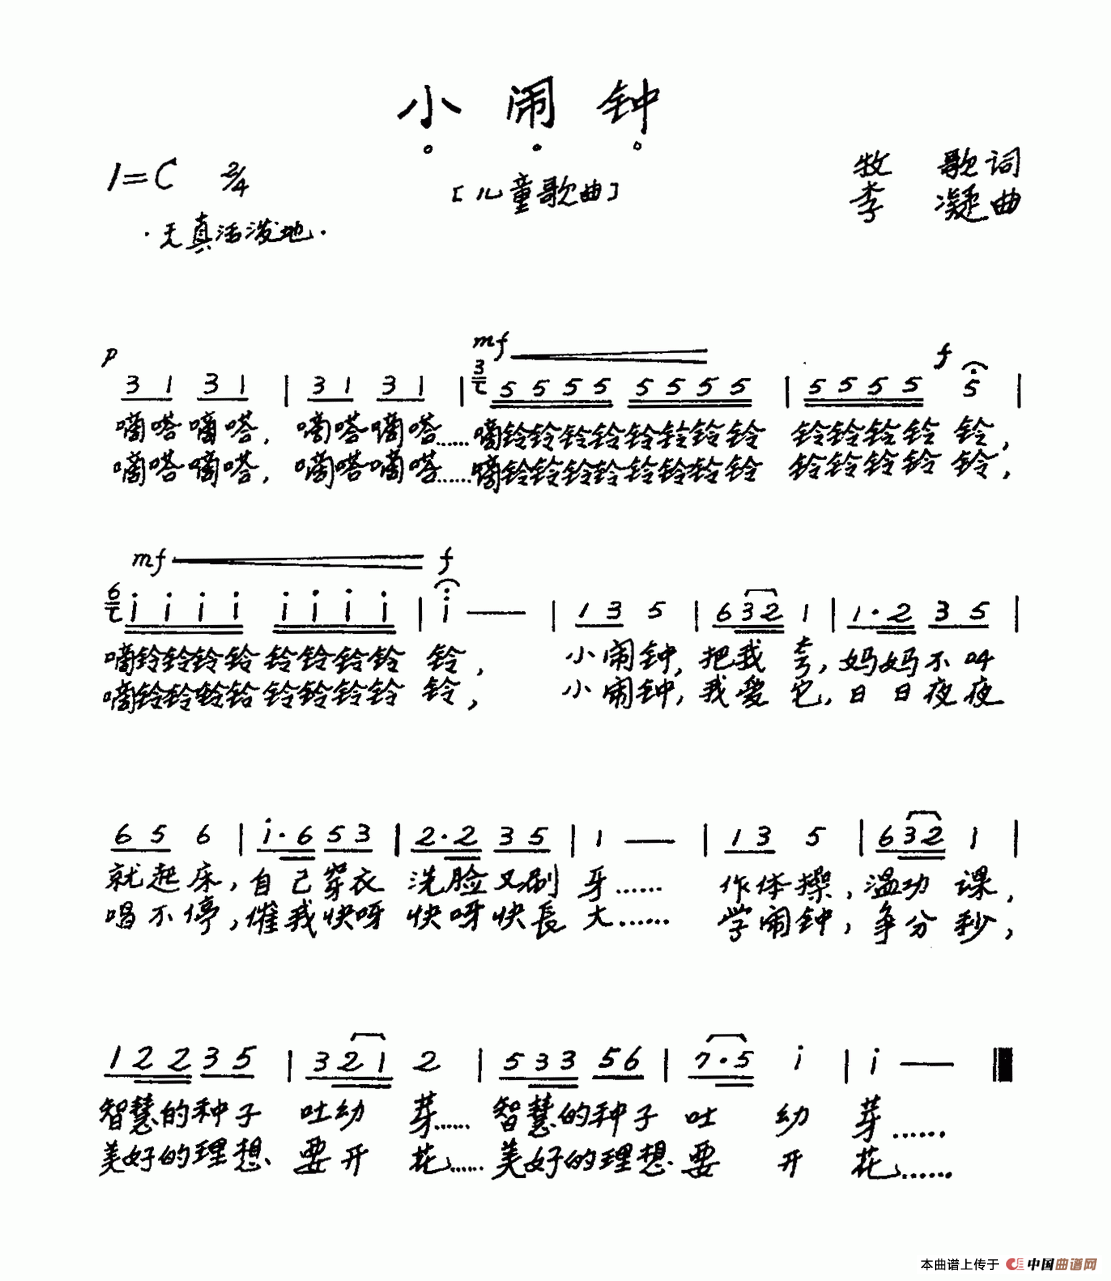 小闹钟
1=C 2/4
[儿童歌曲]
牧 歌词
李 凝曲
·天真活泼地·
p mf f
3 1 3 1 | 3 1 3 1 | 5 5 5 5 5 5 5 5 | 5 5 5 5 5 |
嘀嗒嘀嗒, 嘀嗒嘀嗒……嘀铃铃铃铃铃铃铃铃 铃铃铃铃 铃,
嘀嗒嘀嗒, 嘀嗒嘀嗒……嘀铃铃铃铃铃铃铃铃 铃铃铃铃 铃,
mf f
i i i i i i i i | i — | 1 3 5 | 6 3 2 1 | 1·2 3 5 |
嘀铃铃铃铃 铃铃铃铃 铃, 小闹钟,把我 夸,妈妈不叫
嘀铃铃铃铃 铃铃铃铃 铃, 小闹钟,我爱 它,日日夜夜
6 5 6 | i·6 5 3 | 2·2 3 5 | 1 — | 1 3 5 | 6 3 2 1 |
就起床,自己穿衣 洗脸又刷 牙…… 作体操,温功 课,
唱不停,催我快呀 快呀快長 大…… 学闹钟,争分 秒,
1 2 2 3 5 | 3 2 1 2 | 5 3 3 5 6 | 7·5 i | i — ‖
智慧的种子 吐幼 芽……智慧的种子 吐 幼 芽……
美好的理想、要开 花……美好的理想·要 开 花……
本曲谱上传于 中国曲谱网